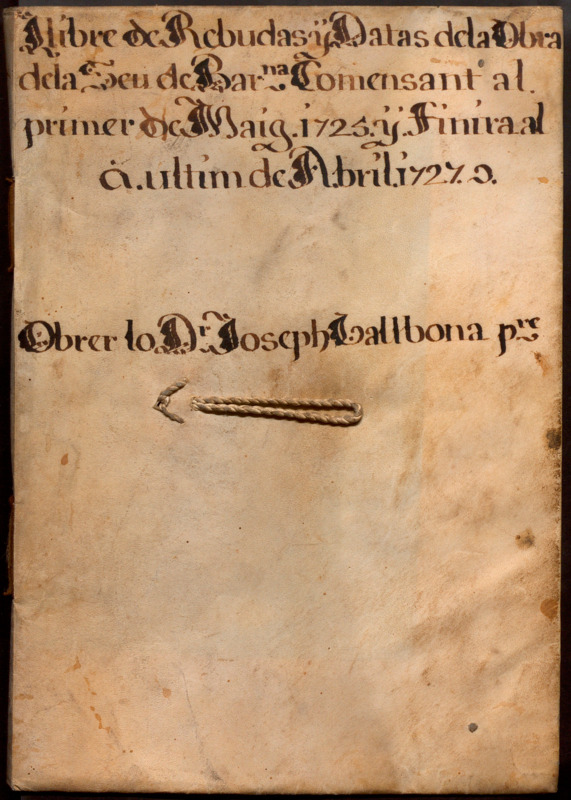 Llibre de Rebudas ÿ Datas dela Obra
dela Seu de Bar.na Comensant al.
primer de Maig. 1725. ÿ. Finira al
à. ultim de Abril. 1727. 9.
Obrer lo Dr. Joseph Vallbona pre